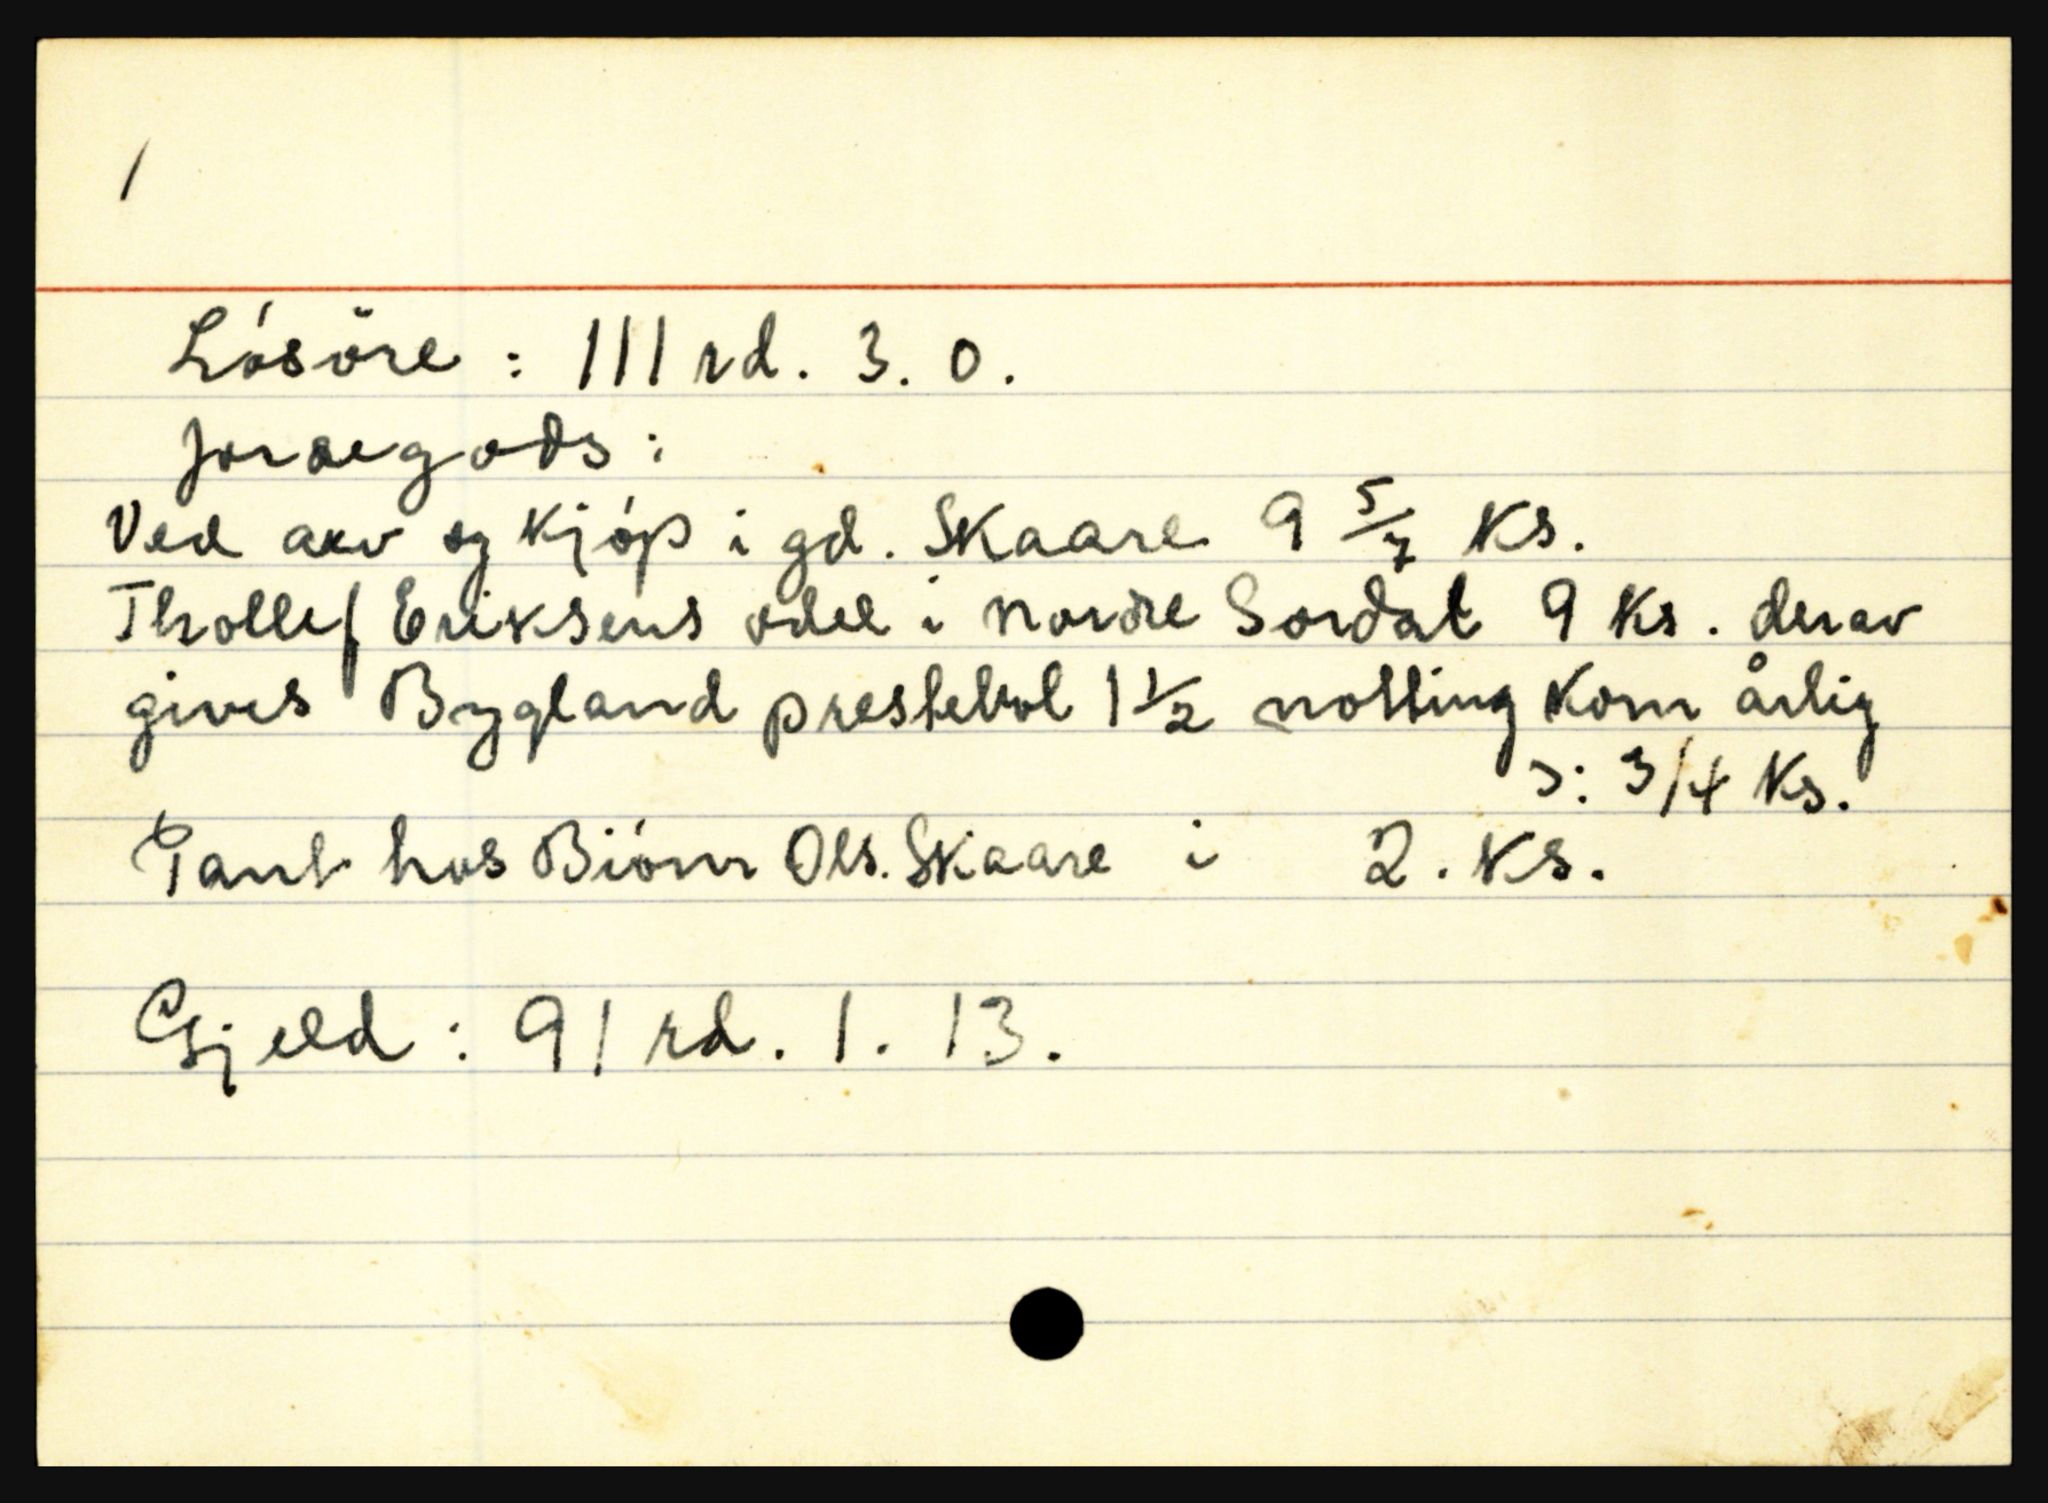 1
Lósöre : 111 rd. 3. 0.
Jordegods :
Ved arv og Kjóp i gd. Skaare 9 5/7 Ks.
Thollef Eriksens odel i nordre Sordal 9 Ks. derav
gives Bygland prestebol 1 1/2 notting Korn årlig
ɔ: 3/4 Ks.
Pant hos Biórn Ols. Skaare i 2. Ks.
Gjeld : 91 rd. 1. 13.